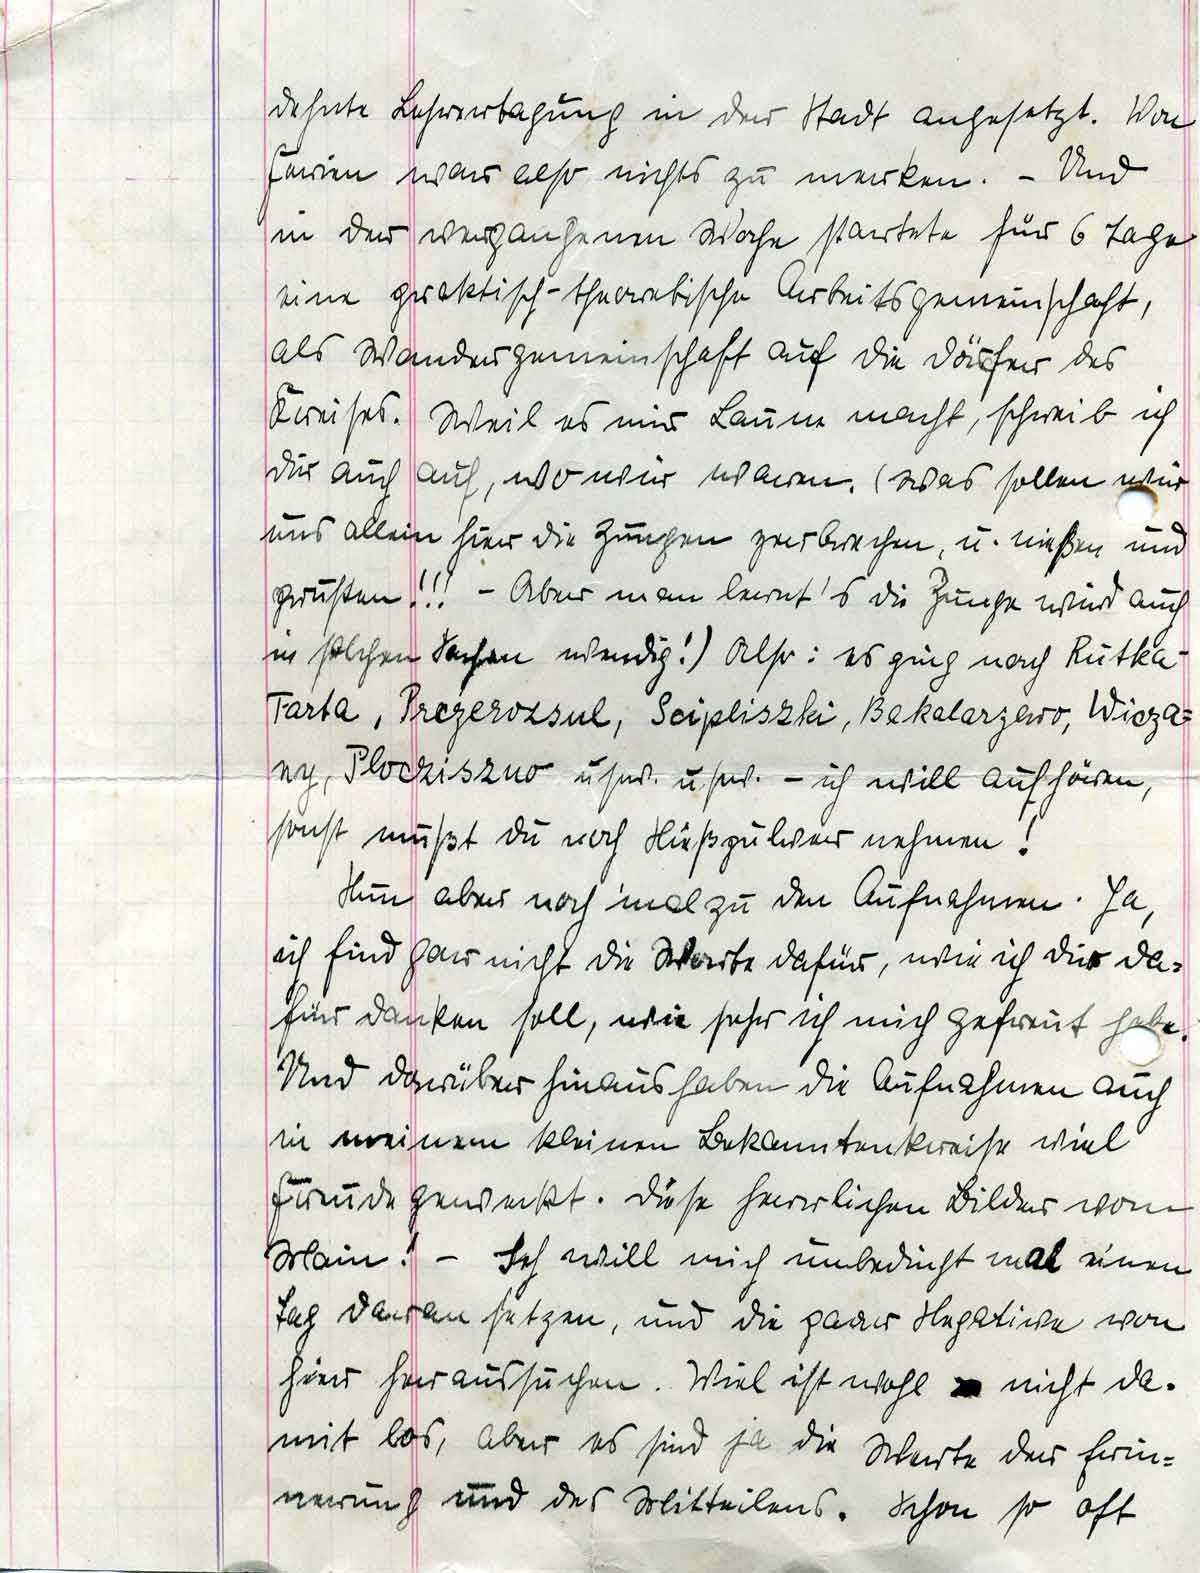 dehnte Lehrertagung in der Stadt angesetzt. Von
Ferien war also nichts zu merken. – Und
in der vergangenen Woche startete für 6 Tage
eine praktisch-theoretische Arbeitsgemeinschaft,
als Wandergemeinschaft auf die Dörfer des
Kreises. Weil es mir Laune macht, schreib ich
Dir auch auf, wo wir waren. (Was sollen wir
uns allein hier die Zungen zerbrechen, u. nießen und
prusten!!! – Aber man lernt's die Zunge wird auch
in solchen Sachen wendig!) Also: es ging nach Rutka-
Tarta, Przerozsul, Scipliszki, Bakalarzewo, Wiza=
ny, Plociziszno usw. usw. – ich will aufhören,
sonst mußt Du noch Nießpulver nehmen!
Nun aber noch 'mal zu den Aufnahmen. Ja,
ich find gar nicht die Worte dafür, wie ich Dir da=
für danken soll, wie sehr ich mich gefreut habe.
Und darüber hinaus haben die Aufnahmen auch
in meinem kleinen Bekanntenkreise viel
Freude geweckt. Diese herrlichen Bilder vom
Main! – Ich will mich unbedingt mal einen
Tag daran setzen, und die paar Negative von
hier heraussuchen. Viel ist wohl nicht da-
mit los, aber es sind ja die Werte der Erin=
nerung und des Mitteilens. Schon so oft